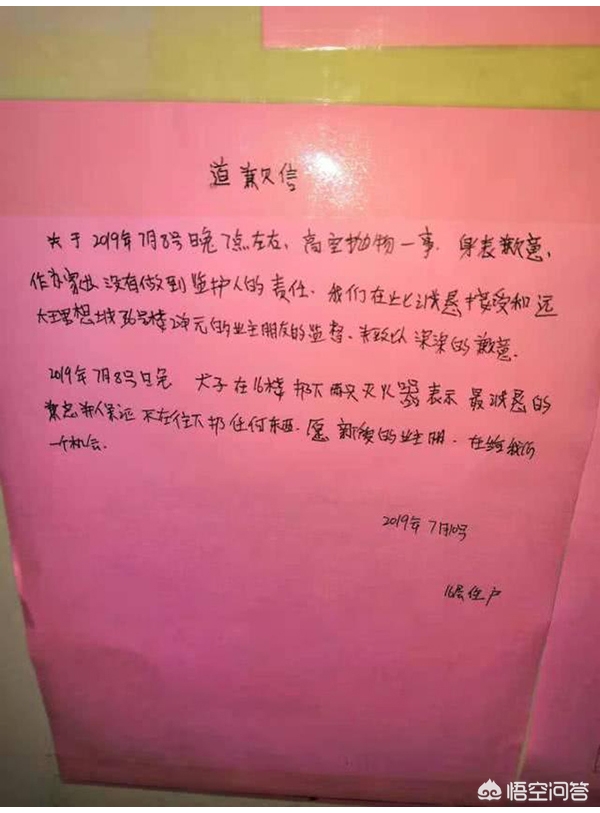 道歉信
关于2019年7月8号日晚7点左右，高空抛物一事．身表歉意，
作为家长没有做到监护人的责任．我们在此诚恳接受和远
大理想城36号楼2单元的业主朋友的监督、并致以深深的歉意．
2019年7月8号日晚 犬子在16楼扔下两只灭火器表示最诚恳的
并保证不在往下扔任何东西．愿 的业主朋．在给我们
一个机会
2019年7月10号
16层住户
悟空问答